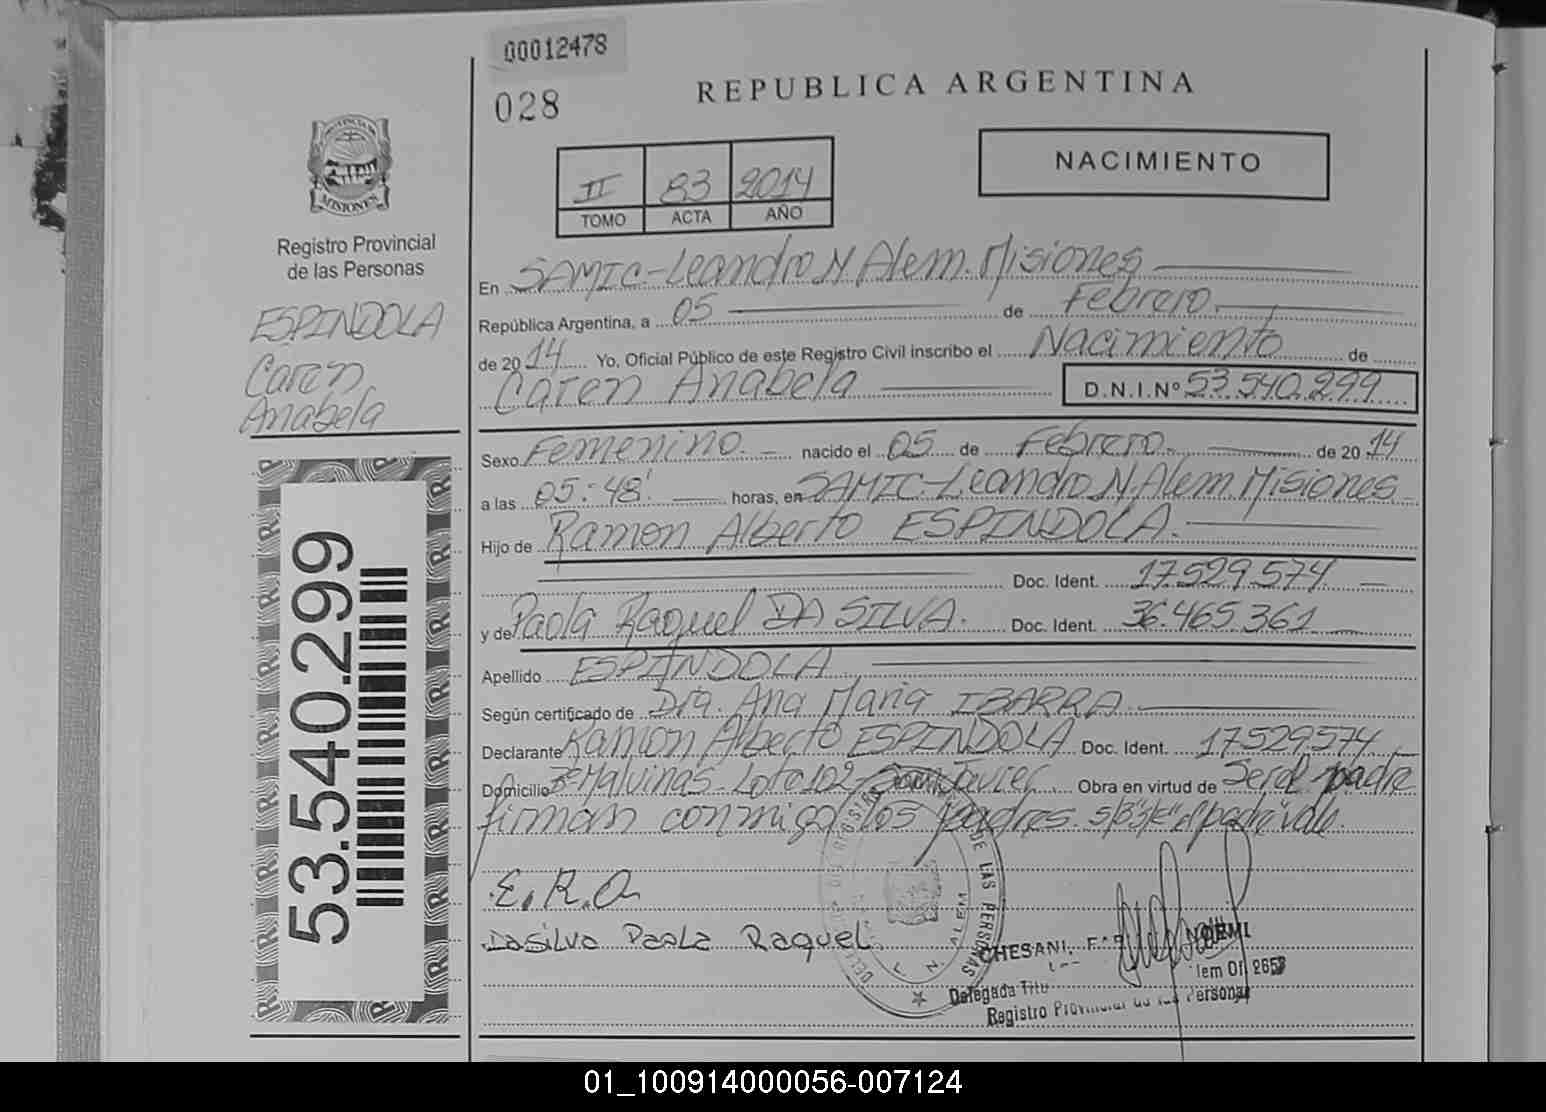 00012478
028
REPUBLICA ARGENTINA
NACIMIENTO
II 83 2014
TOMO ACTA AÑO
PROVINCIA DE
MISIONES
Registro Provincial
de las Personas
ESPINDOLA
Caren
Anabela
53.540.299
En SAMIC-Leandro N Alem. Misiones
República Argentina, a 05 de Febrero.
de 2014 Yo, Oficial Público de este Registro Civil inscribo el Nacimiento de
Caren Anabela D.N.I.Nº 53.540.299
Sexo Femenino. nacido el 05 de Febrero. de 2014
a las 05:48' horas, en SAMIC-Leandro N Alem. Misiones
Hijo de Ramon Alberto ESPINDOLA.
Doc. Ident. 17.529.574
y de Paola Raquel DA SILVA. Doc. Ident. 36.465.361
Apellido ESPINDOLA
Según certificado de Dra. Ana Maria IBARRA
Declarante Ramon Alberto ESPINDOLA Doc. Ident. 17.529.574
Domicilio Bº Malvinas-Lote 102-San Javier. Obra en virtud de Ser el padre
firman conmigo los padres. S/B S/E "el padre" vale.
E.R.A
Dasilva Paola Raquel
DE LAS PERSONAS
N. ALEM
CHESANI, NOEMI
Delegada Titu lem Of. 2653
Registro Provincial de las Personas
01_100914000056-007124